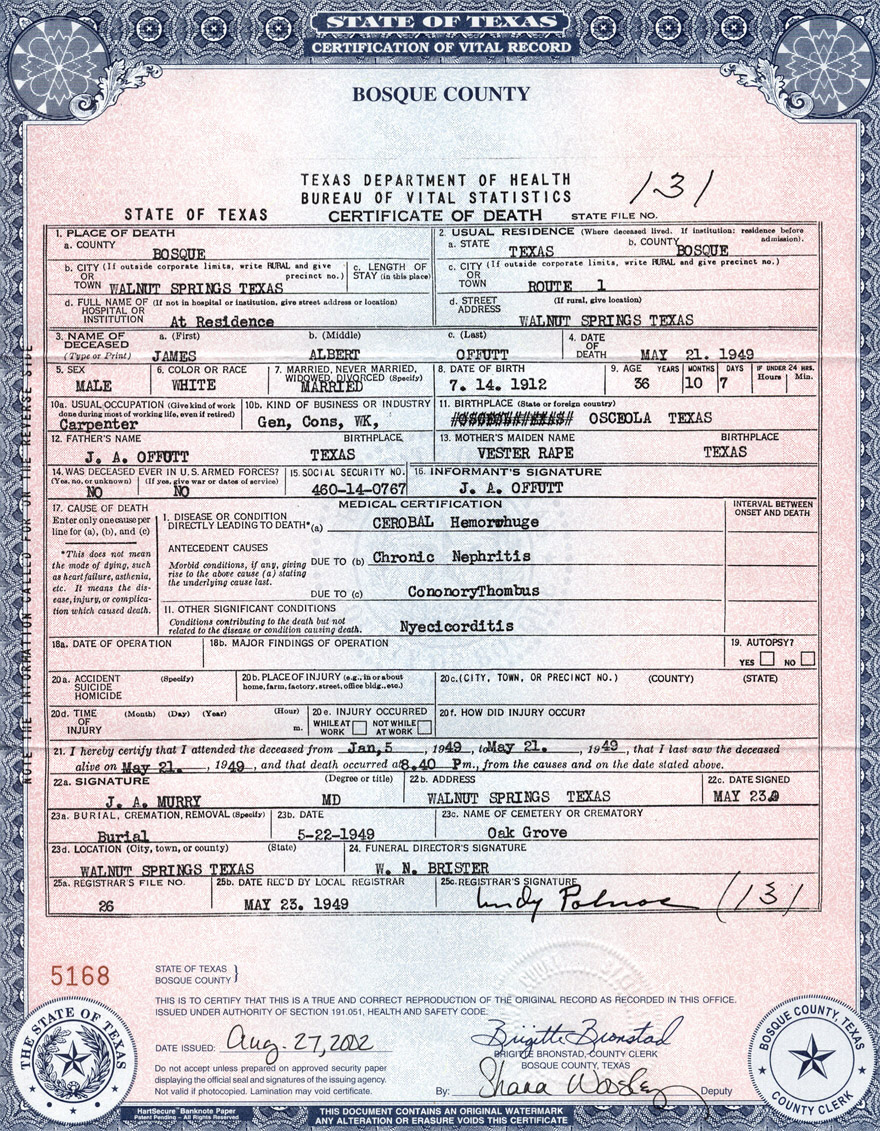 STATE OF TEXAS
CERTIFICATION OF VITAL RECORD
BOSQUE COUNTY
TEXAS DEPARTMENT OF HEALTH
BUREAU OF VITAL STATISTICS
131
STATE OF TEXAS CERTIFICATE OF DEATH STATE FILE NO.
1. PLACE OF DEATH
a. COUNTY
BOSQUE
2. USUAL RESIDENCE (Where deceased lived. If institution: residence before admission).
a. STATE TEXAS b. COUNTY BOSQUE
b. CITY (If outside corporate limits, write RURAL and give precinct no.)
OR
TOWN WALNUT SPRINGS TEXAS
c. LENGTH OF STAY (in this place)
c. CITY (If outside corporate limits, write RURAL and give precinct no.)
OR
TOWN ROUTE 1
d. FULL NAME OF (If not in hospital or institution, give street address or location)
HOSPITAL OR
INSTITUTION At Residence
d. STREET ADDRESS (If rural, give location)
WALNUT SPRINGS TEXAS
3. NAME OF DECEASED
(Type or Print)
a. (First) b. (Middle) c. (Last)
JAMES ALBERT OFFUTT
4. DATE OF DEATH MAY 21. 1949
5. SEX
MALE
6. COLOR OR RACE
WHITE
7. MARRIED, NEVER MARRIED, WIDOWED, DIVORCED (Specify)
MARRIED
8. DATE OF BIRTH
7. 14. 1912
9. AGE YEARS MONTHS DAYS IF UNDER 24 HRS. Hours Min.
36 10 7
10a. USUAL OCCUPATION (Give kind of work done during most of working life, even if retired)
Carpenter
10b. KIND OF BUSINESS OR INDUSTRY
Gen, Cons, WK,
11. BIRTHPLACE (State or foreign country)
OSCEOLA TEXAS
12. FATHER'S NAME BIRTHPLACE
J. A. OFFUTT TEXAS
13. MOTHER'S MAIDEN NAME BIRTHPLACE
VESTER RAPE TEXAS
14. WAS DECEASED EVER IN U. S. ARMED FORCES?
(Yes, no, or unknown) (If yes, give war or dates of service)
NO NO
15. SOCIAL SECURITY NO.
460-14-0767
16. INFORMANT'S SIGNATURE
J. A. OFFUTT
17. CAUSE OF DEATH
Enter only one cause per line for (a), (b), and (c)
*This does not mean the mode of dying, such as heart failure, asthenia, etc. It means the disease, injury, or complication which caused death.
MEDICAL CERTIFICATION
INTERVAL BETWEEN ONSET AND DEATH
1. DISEASE OR CONDITION
DIRECTLY LEADING TO DEATH* (a) CEROBAL Hemorwhuge
ANTECEDENT CAUSES
Morbid conditions, if any, giving rise to the above cause (a) stating the underlying cause last.
DUE TO (b) Chronic Nephritis
DUE TO (c) CononoryThombus
11. OTHER SIGNIFICANT CONDITIONS
Conditions contributing to the death but not related to the disease or condition causing death.
Nyecicorditis
18a. DATE OF OPERATION
18b. MAJOR FINDINGS OF OPERATION
19. AUTOPSY?
YES NO
20a. ACCIDENT SUICIDE HOMICIDE (Specify)
20b. PLACE OF INJURY (e.g., in or about home, farm, factory, street, office bldg., etc.)
20c. (CITY, TOWN, OR PRECINCT NO.) (COUNTY) (STATE)
20d. TIME OF INJURY (Month) (Day) (Year) (Hour) m.
20e. INJURY OCCURRED
WHILE AT WORK NOT WHILE AT WORK
20f. HOW DID INJURY OCCUR?
21. I hereby certify that I attended the deceased from Jan,5, 1949, to May 21., 1949, that I last saw the deceased
alive on May 21., 1949, and that death occurred at 8.40 Pm., from the causes and on the date stated above.
22a. SIGNATURE (Degree or title)
J. A. MURRY MD
22b. ADDRESS
WALNUT SPRINGS TEXAS
22c. DATE SIGNED
MAY 23.
23a. BURIAL, CREMATION, REMOVAL (Specify)
Burial
23b. DATE
5-22-1949
23c. NAME OF CEMETERY OR CREMATORY
Oak Grove
23d. LOCATION (City, town, or county) (State)
WALNUT SPRINGS TEXAS
24. FUNERAL DIRECTOR'S SIGNATURE
W. N. BRISTER
25a. REGISTRAR'S FILE NO.
26
25b. DATE REC'D BY LOCAL REGISTRAR
MAY 23. 1949
25c. REGISTRAR'S SIGNATURE
131
5168
STATE OF TEXAS
BOSQUE COUNTY }
THIS IS TO CERTIFY THAT THIS IS A TRUE AND CORRECT REPRODUCTION OF THE ORIGINAL RECORD AS RECORDED IN THIS OFFICE.
ISSUED UNDER AUTHORITY OF SECTION 191.051, HEALTH AND SAFETY CODE.
DATE ISSUED: Aug. 27, 2002
Brigitte Bronstad
BRIGITTE BRONSTAD, COUNTY CLERK
BOSQUE COUNTY, TEXAS
Do not accept unless prepared on approved security paper
displaying the official seal and signatures of the issuing agency.
Not valid if photocopied. Lamination may void certificate.
By: Shana Deputy
THE STATE OF TEXAS
BOSQUE COUNTY, TEXAS
COUNTY CLERK
HartSecure Banknote Paper
Patent Pending - All Rights Reserved
THIS DOCUMENT CONTAINS AN ORIGINAL WATERMARK
ANY ALTERATION OR ERASURE VOIDS THIS CERTIFICATE